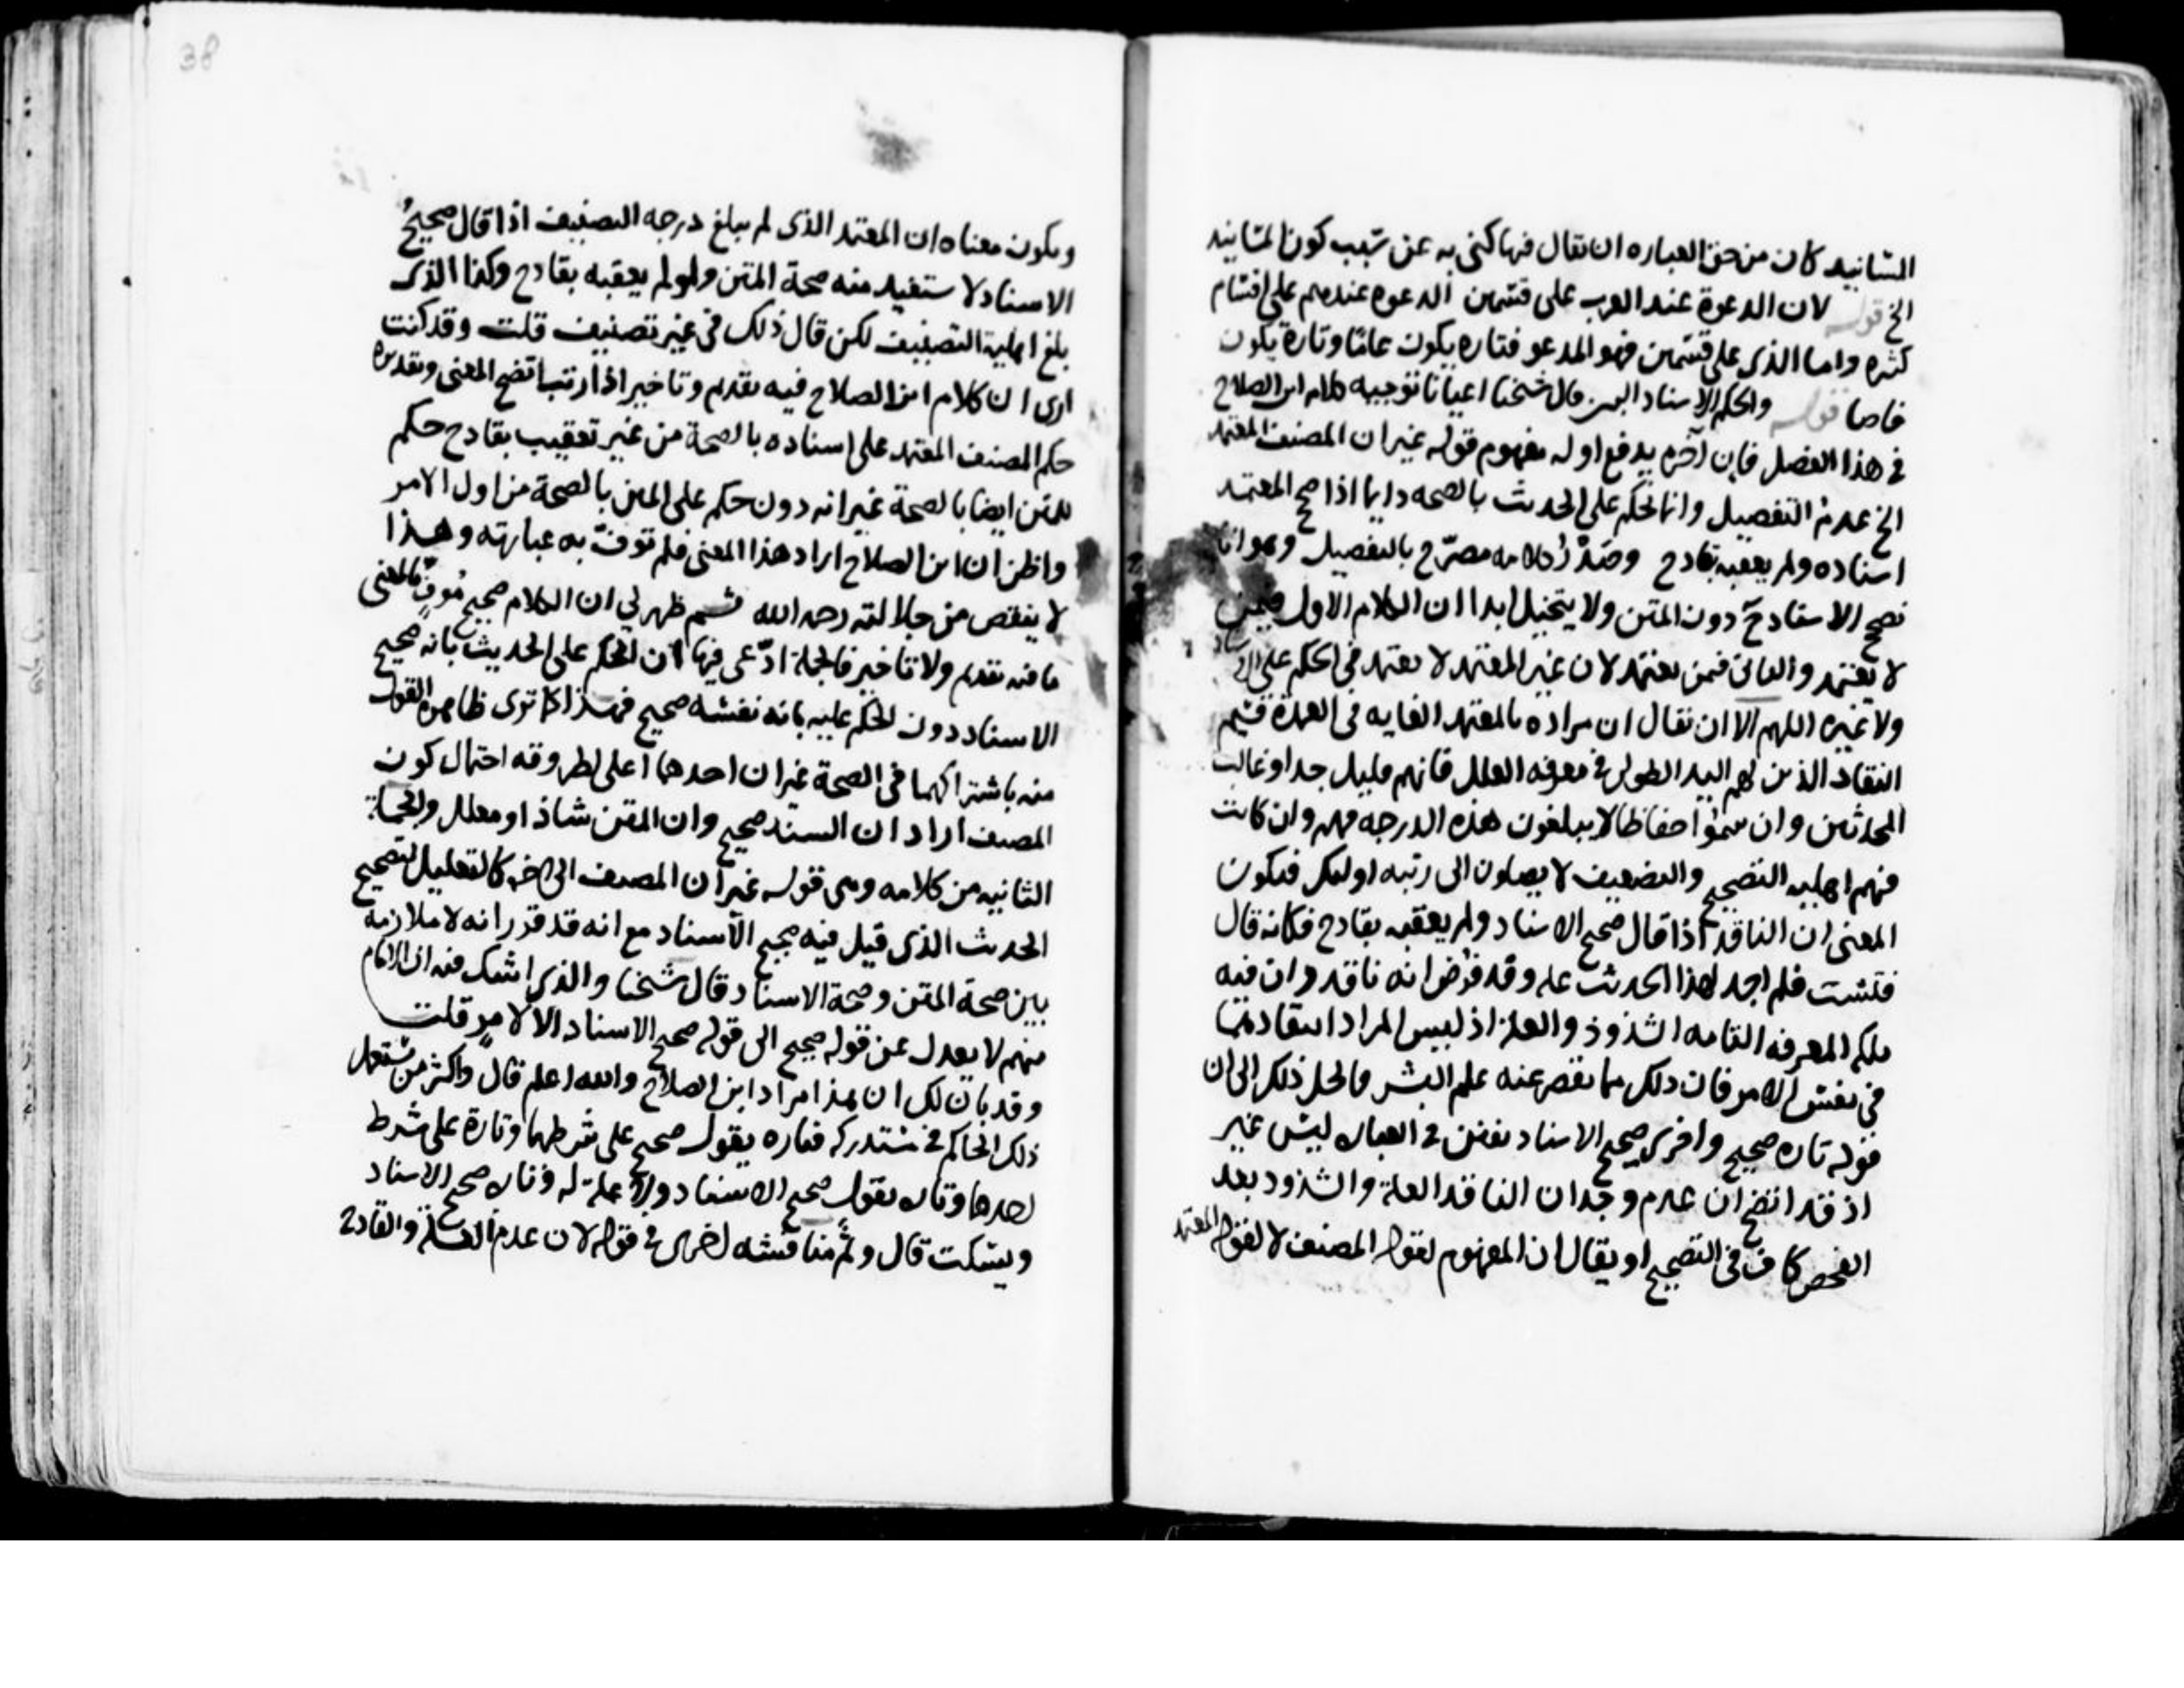 المسانيد كان من حق العباره ان يقال فيها كنى به عن سبب كون المسانيد
الخ قوله لان الدعوة عند العرب على قسمين الدعوه عندهم على اقسام
كثيره واما الذي على قسمين فهو المدعو فتاره يكون عامًا وتارة يكون
خاصا قوله والحكم للاسناد قال شيخنا اعيانا توجيه كلام ابن الصلاح
في هذا الفصل فان آخره يدفع اوله مفهوم قوله غير ان المصنف المعتمد
الخ عدم التفصيل وانا نحكم على الحديث بالصحه دايما اذا صحح المعتمد
اسناده ولم يعقبه بقادح وصَدْرُ كلامه مصرّح بالتفصيل وهو انا
نصحح الاسناد دون المتن ولا يتخيل ابدا ان الكلام الاول فيمن
لا يعتمد والثاني فيمن يعتمد لان غير المعتمد لا يعتمد في الحكم على الاسناد
ولا غيره اللهم الا ان يقال ان مراده بالمعتمد الغايه في العمدة فيهم
النقاد الذين لهم اليد الطولى في معرفه العلل فانهم قليل جدا وغالب
المحدثين وان سموا حفاظا لا يبلغون هذه الدرجه فهم وان كانت
فيهم اهليه التصحيح والتضعيف لا يصلون الى رتبه اولئك فيكون
المعنى ان الناقد اذا قال صحيح الاسناد ولم يعقبه بقادح فكانه قال
فتشت فلم اجد لهذا الحديث علة وقد فرض انه ناقد وان فيه
ملكه المعرفه التامه الشذوذ والعلة اذ ليس المراد انتفادهما
في نفس الامر فان ذلك مما يقصر عنه علم البشر فانحل ذلك الى ان
قوله تاره صحيح واخرى صحيح الاسناد تفنن في العبارة ليس غير
اذ قد اتضح ان عدم وجدان الناقد العلة والشذوذ بعد
الفحص كاف في التصحيح او يقال ان المفهوم لقوله المصنف لا لقوله المعتمد
38
ويكون معناه ان المعتمد الذي لم يبلغ درجه التصنيف اذا قال صحيحُ
الاسناد لا ستفيد منه صحة المتن ولو لم يعقبه بقادح وكذا الذي
بلغ اهلية التصنيف لكن قال ذلك في غير تصنيف قلت وقد كنت
ارى ان كلام ابن الصلاح فيه تقديم وتاخير اذا رتب اتضح المعنى وتقديره
حكم المصنف المعتمد على اسناده بالصحة من غير تعقيب بقادح حكم
للمتن ايضا بالصحة غير انه دون حكم على المتن بالصحة من اول الامر
واظن ان ابن الصلاح اراد هذا المعنى فلم توف به عبارته وهذا
لا ينقص من جلالته رحمه الله ثم ظهر لي ان الكلام صحيح مُوفٍ بالمعنى
ما فيه تقديم ولا تاخير فالجملة ادّعى فيها ان الحكم على الحديث بانه صحيح
الاسناد دون الحكم عليه بانه نفسه صحيح فهذا كما ترى ظاهره القول
منه باشتراكهما في الصحة غير ان احدهما اعلى لطروقه احتمال كون
المصنف اراد ان السند صحيح وان المتن شاذ او معلل والجملة
الثانيه من كلامه وهي قوله غير ان المصنف الى اخره كالتعليل لتصحيح
الحديث الذي قيل فيه صحيح الاسناد مع انه قد قرر انه لا ملازمة
بين صحة المتن وصحة الاسناد قال شيخنا والذي لا شك فيه ان الامام
منهم لا يعدل عن قوله صحيح الى قوله صحيح الاسناد الا لامرٍ قلت
وقد بان لك ان هذا مراد ابن الصلاح والله اعلم قال واكثر من يستعمل
ذلك الحاكم في مستدركه فتاره يقول صحيح على شرطهما وتارة على شرط
احدهما وتاره يقول صحيح الاسناد ولا علة له وتاره صحيح الاسناد
ويسكت قال وثم مناقشه اخرى في قوله لان عدم العلة والقادح